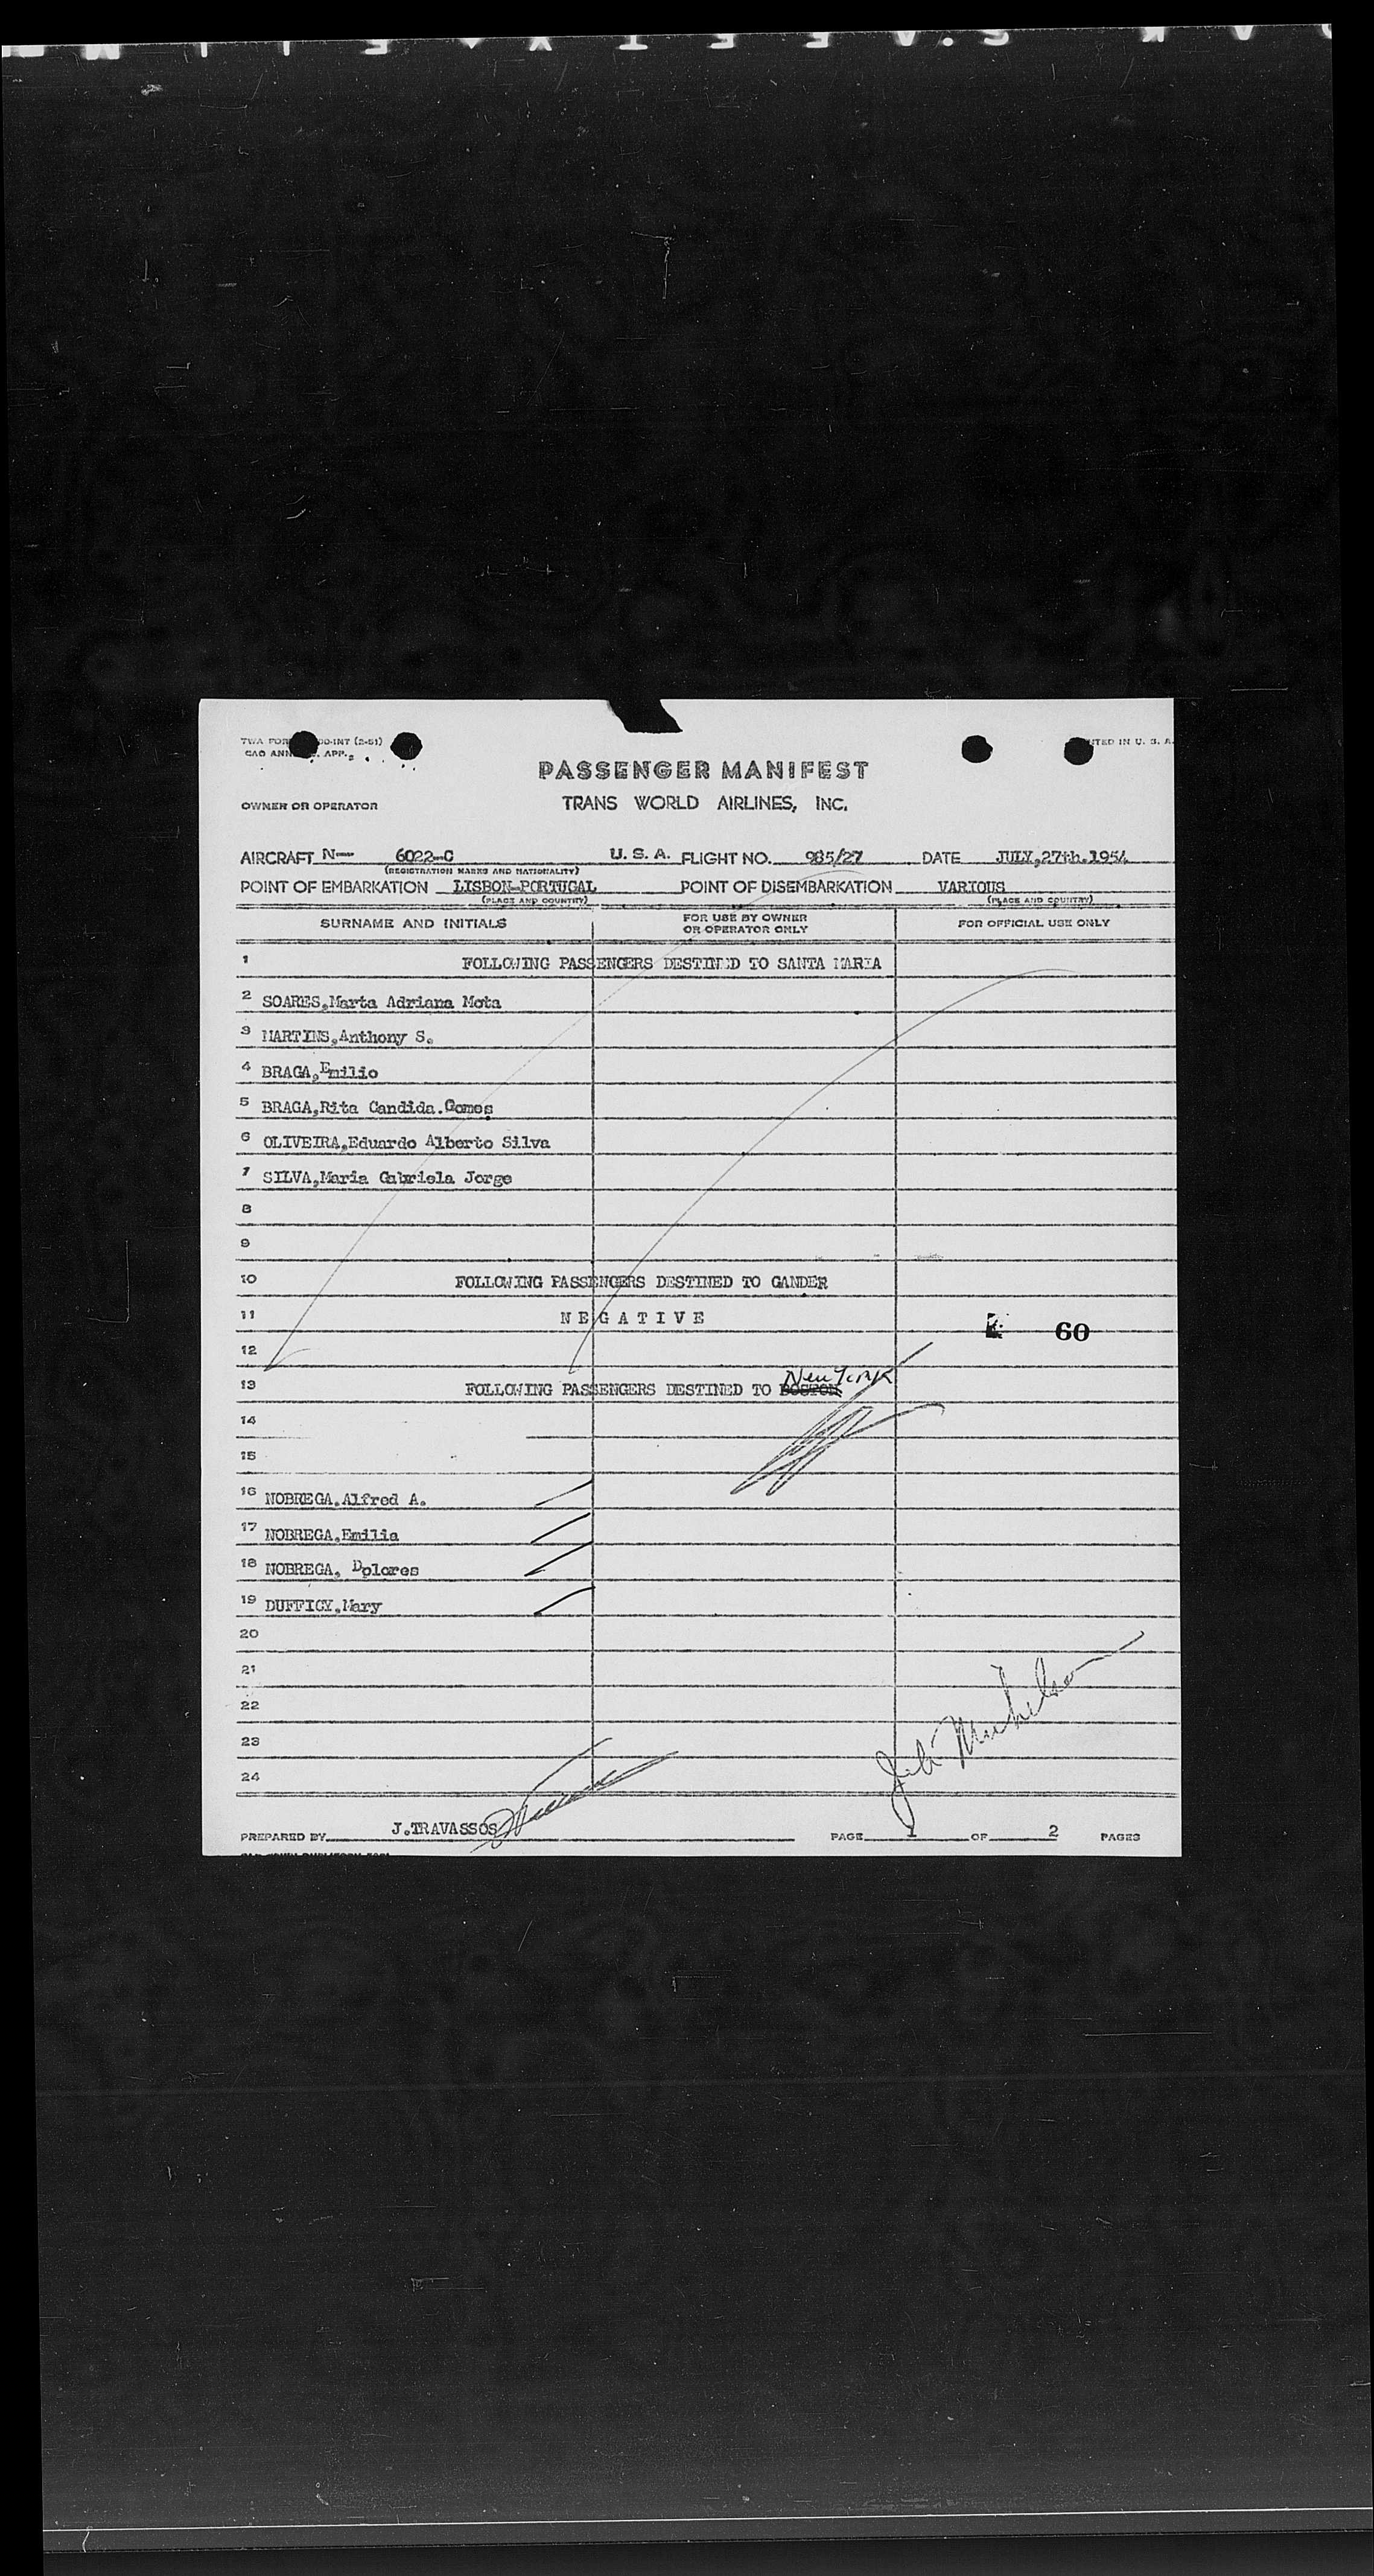 PASSENGER MANIFEST
OWNER OR OPERATOR TRANS WORLD AIRLINES, INC.
AIRCRAFT N— 6022-C U. S. A. FLIGHT NO. 985/27 DATE JULY,27th.1954
(REGISTRATION MARKS AND NATIONALITY)
POINT OF EMBARKATION LISBON-PORTUGAL POINT OF DISEMBARKATION VARIOUS
(PLACE AND COUNTRY) (PLACE AND COUNTRY)
SURNAME AND INITIALS FOR USE BY OWNER OR OPERATOR ONLY FOR OFFICIAL USE ONLY
1 FOLLOWING PASSENGERS DESTINED TO SANTA MARIA
2 SOARES,Marta Adriana Mota
3 MARTINS,Anthony S.
4 BRAGA,Emilio
5 BRAGA,Rita Candida.Gomes
6 OLIVEIRA,Eduardo Alberto Silva
7 SILVA,Maria Gabriela Jorge
8
9
10 FOLLOWING PASSENGERS DESTINED TO GANDER
11 N E G A T I V E
60
12
New York
13 FOLLOWING PASSENGERS DESTINED TO BOSTON
14
15
16 NOBREGA,Alfred A.
17 NOBREGA,Emilia
18 NOBREGA, Dolores
19 DUFFICY,Mary
20
21
22
23
24
PREPARED BY J.TRAVASSOS PAGE 1 OF 2 PAGES